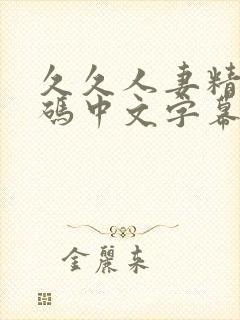 久久人妻精
碼中文字幕
金麗來